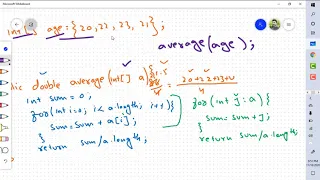 int[] age = {20,22,23,21};
average(age);
lic double average(int[] a){
int sum = 0;
for(int i=0; i<a.length; i++){
sum = sum + a[i];
}
return sum/a.length;
20+22+23+21
4
for(int j:a){
sum = sum + j;
}
return sum/a.length;